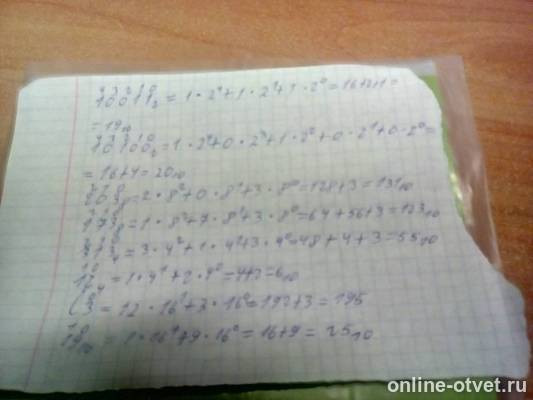 4 3 2 1 0
10011₂ = 1·2⁴+1·2¹+1·2⁰=16+2+1=
=19₁₀
4 3 2 1 0
10100₂=1·2⁴+0·2³+1·2²+0·2¹+0·2⁰=
=16+4=20₁₀
2 1 0
203₈=2·8²+0·8¹+3·8⁰=128+3=131₁₀
2 1 0
173₈=1·8²+7·8¹+3·8⁰=64+56+3=123₁₀
2 1 0
313₄=3·4²+1·4¹+3·4⁰=48+4+3=55₁₀
1 0
12₄=1·4¹+2·4⁰=4+2=6₁₀
C3=12·16¹+3·16⁰=192+3=195
1 0
19₁₆=1·16¹+9·16⁰=16+9=25₁₀
online-otvet.ru